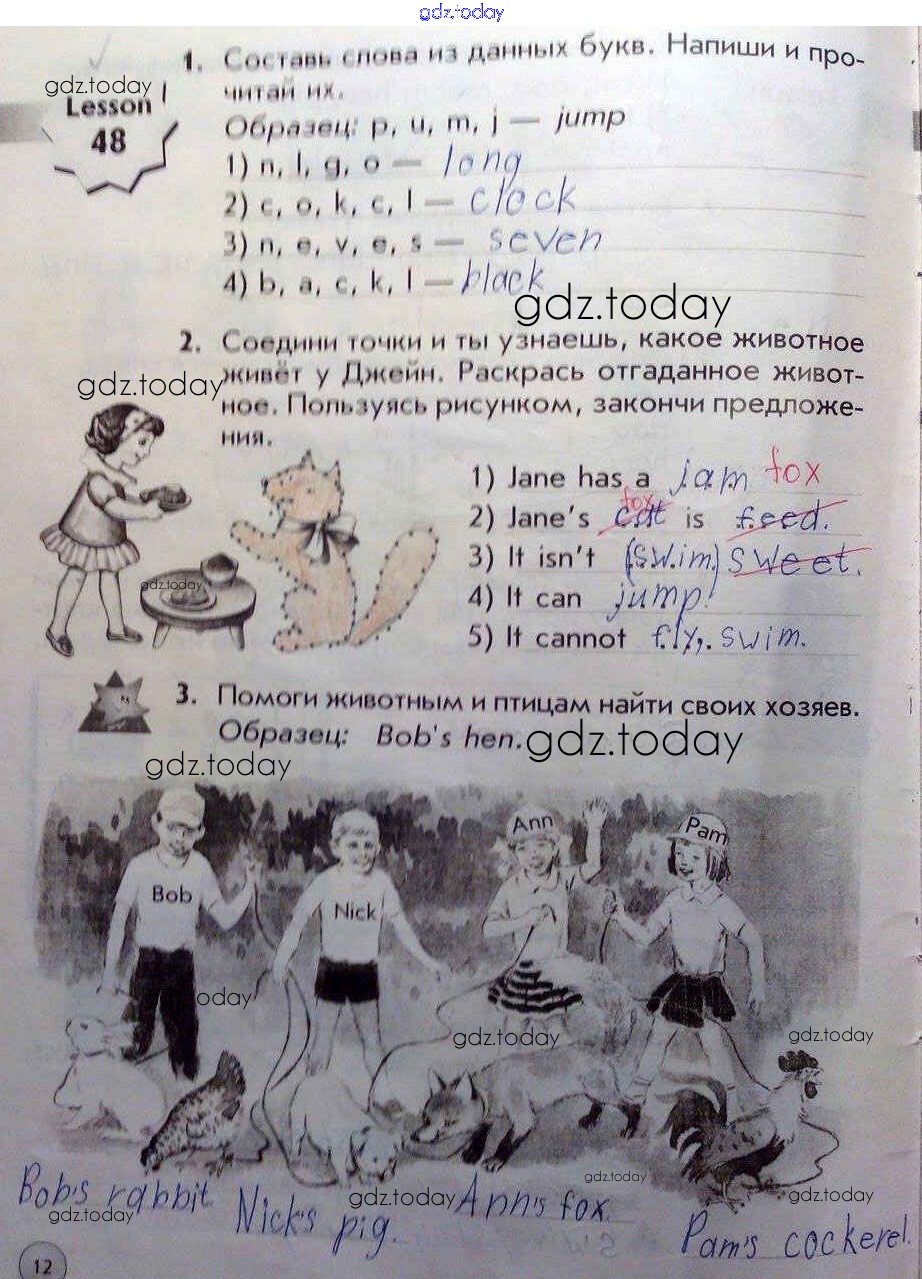 gdz.today
1. Составь слова из данных букв. Напиши и про-
gdz.today
читай их.
Lesson
48
Образец: p, u, m, j — jump
1) n, l, g, o — long
2) c, o, k, c, l — clock
3) n, e, v, e, s — seven
4) b, a, c, k, l — black
gdz.today
2. Соедини точки и ты узнаешь, какое животное
живёт у Джейн. Раскрась отгаданное живот-
gdz.today
ное. Пользуясь рисунком, закончи предложе-
ния.
1) Jane has a jam fox
fox
2) Jane's cat is feed.
3) It isn't (swim) sweet.
gdz.today
4) It can jump!
5) It cannot fly, swim.
3. Помоги животным и птицам найти своих хозяев.
Образец: Bob's hen.
gdz.today
gdz.today
Ann
Pam
Bob
Nick
today
gdz.today
gdz.today
gdz.today
Bob's rabbit
gdz.today
Nick's pig.
gdz.today
Ann's fox.
gdz.today
Pam's cockerel.
12